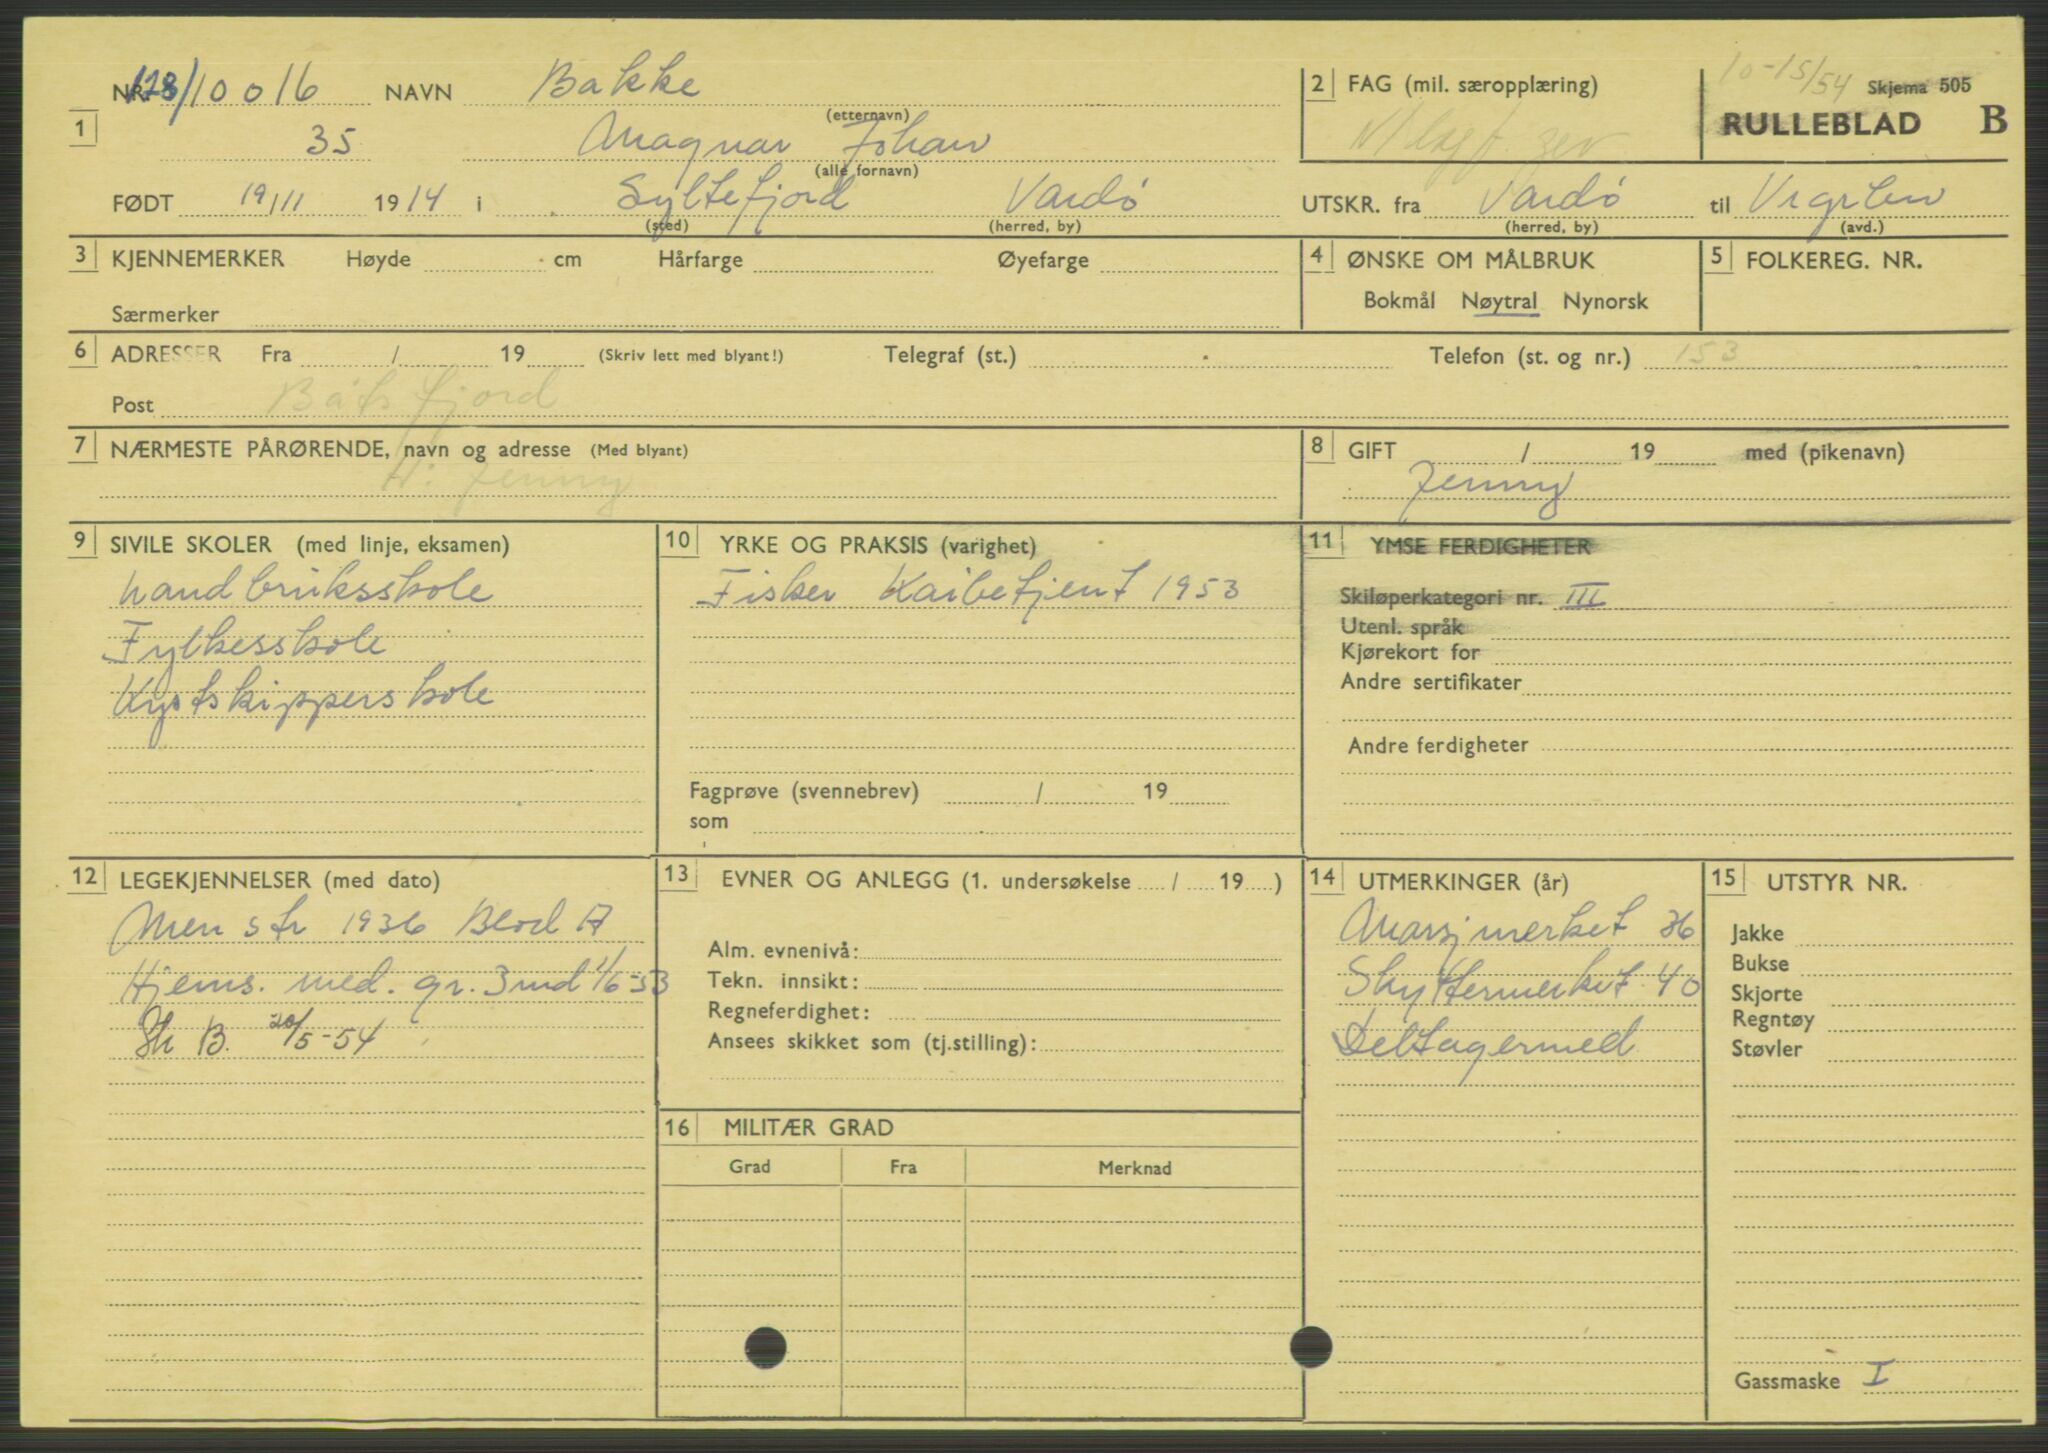 10-15/54 Skjema 505
NR. 178/10016 NAVN Bakke
(etternavn)
2 FAG (mil. særopplæring)
RULLEBLAD B
1
35 Magnar Johan
(alle fornavn)
FØDT 19/11 1914 i Syltefjord Vardø
(sted) (herred, by)
UTSKR. fra Vardø til
(herred, by) (avd.)
3 KJENNEMERKER Høyde cm Hårfarge Øyefarge
Særmerker
4 ØNSKE OM MÅLBRUK
Bokmål Nøytral Nynorsk
5 FOLKEREG. NR.
6 ADRESSER Fra / 19 (Skriv lett med blyant!) Telegraf (st.) Telefon (st. og nr.) 153
Post Båtsfjord
7 NÆRMESTE PÅRØRENDE, navn og adresse (Med blyant)
H: Jenny
8 GIFT / 19 med (pikenavn)
Jenny
9 SIVILE SKOLER (med linje, eksamen)
Handbruksskole
Fylkesskole
Kystskipperskole
10 YRKE OG PRAKSIS (varighet)
Fisker Kaibetjent 1953
Fagprøve (svennebrev) / 19
som
11 YMSE FERDIGHETER
Skiløperkategori nr. III
Utenl. språk
Kjørekort for
Andre sertifikater
Andre ferdigheter
12 LEGEKJENNELSER (med dato)
Men str 1936 Blod A
Hjems. med. gr. 3 md 1/6-53
B. 20/5-54
13 EVNER OG ANLEGG (1. undersøkelse / 19 )
Alm. evnenivå:
Tekn. innsikt:
Regneferdighet:
Ansees skikket som (tj.stilling):
14 UTMERKINGER (år)
Marsjmerket 36
Skyttermerket 40
Deltagermed
15 UTSTYR NR.
Jakke
Bukse
Skjorte
Regntøy
Støvler
Gassmaske I
16 MILITÆR GRAD
Grad Fra Merknad